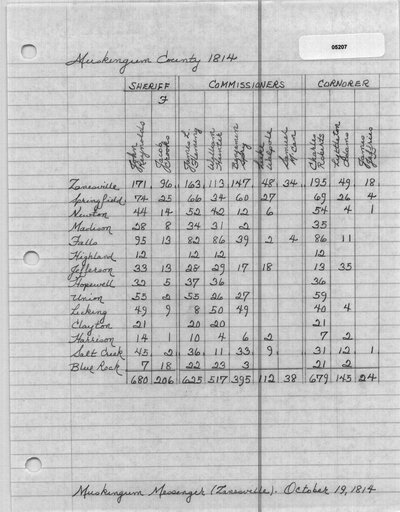 05207
Muskingum County 1814
SHERIFF COMMISSIONERS CORNORER
John Reynolds
Isaac Brooks
James L. Fleming
William Hunter
Benjamin
Luke Walpole
Samuel McCan
Charles Roberts
Lyttleton Adams
James Jeffries
Zanesville 171 96 163 113 147 48 34 195 49 18
Springfield 74 25 66 34 60 27 69 26 4
Newton 44 14 52 42 12 6 54 4 1
Madison 28 8 34 31 2 35
Falls 95 13 82 86 39 2 4 86 11
Highland 12 12 12 12
Jefferson 33 13 28 29 17 18 13 35
Hopewell 32 5 37 36 36
Union 55 2 55 26 27 59
Licking 49 9 8 50 49 40 4
Clayton 21 20 20 21
Harrison 14 1 10 4 6 2 7 2
Salt Creek 45 2 36 11 33 9 31 12 1
Blue Rock 7 18 22 23 3 21 2
680 206 625 517 395 112 38 679 145 24
Muskingum Messenger (Zanesville). October 19, 1814